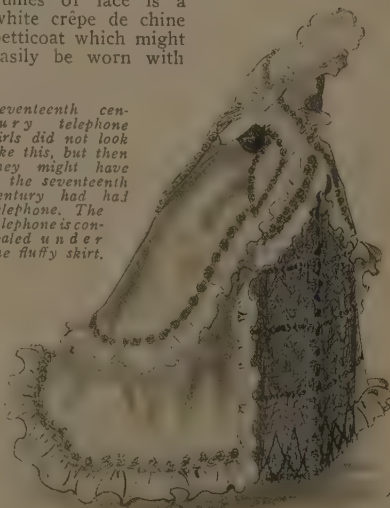 of lace is a
white crêpe de chine
petticoat which might
easily be worn with
eventeenth cen-
ury telephone
irls did not look
ke this, but then
hey might have
the seventeenth
entury had had
lephone. The
lephone is con-
ealed under
he fluffy skirt.